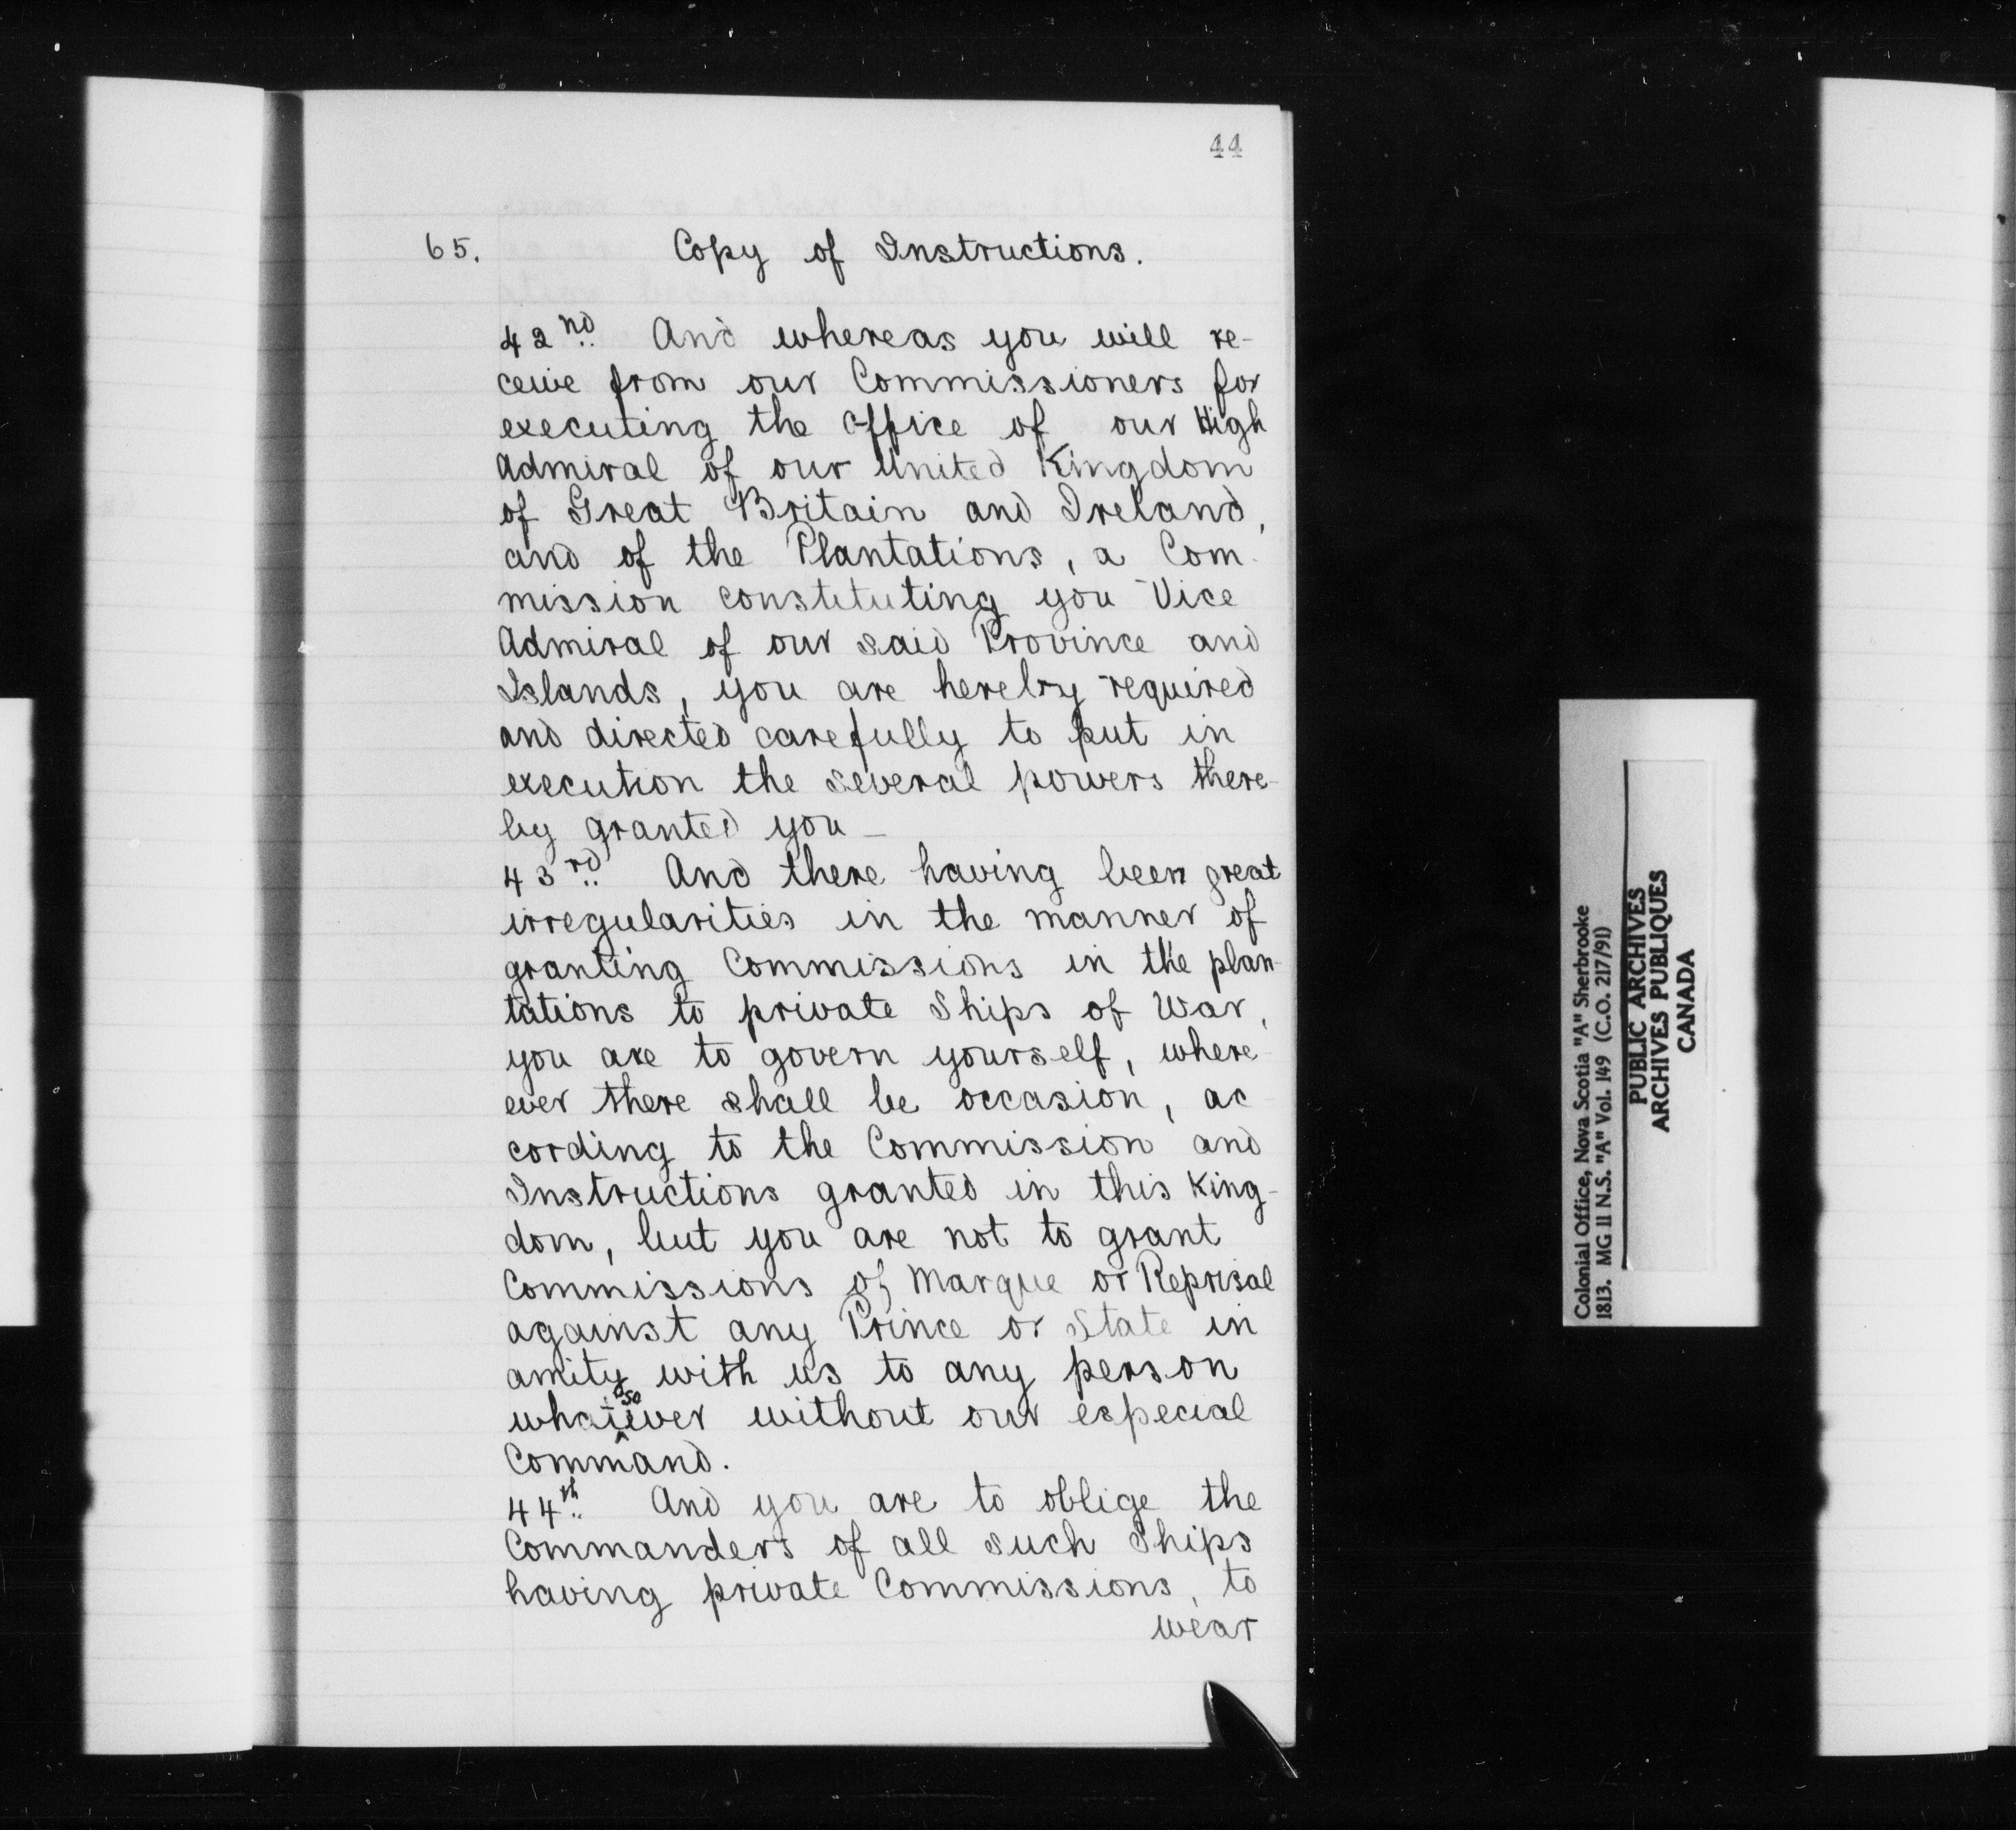 44
65. Copy of Instructions.
42nd And whereas you will re-
ceive from our Commissioners for
executing the office of our High
Admiral of our United Kingdom
of Great Britain and Ireland,
and of the Plantations, a Com-
mission constituting you Vice
Admiral of our said Province and
Islands, you are hereby required
and directed carefully to put in
execution the several powers there-
by granted you -
43rd And there having been great
irregularities in the manner of
granting Commissions in the plan-
tations to private Ships of War,
you are to govern yourself, where
ever there shall be occasion, ac
cording to the Commission and
Instructions granted in this King-
dom, but you are not to grant
Commissions of Marque or Reprisal
against any Prince or State in
amity with us to any person
whatsoever without our especial
Command.
44th And you are to oblige the
Commanders of all such Ships
having private Commissions, to
wear
Colonial Office, Nova Scotia "A" Sherbrooke
1813. MG 11 N.S. "A" Vol. 149 (C.O. 217/91)
PUBLIC ARCHIVES
ARCHIVES PUBLIQUES
CANADA